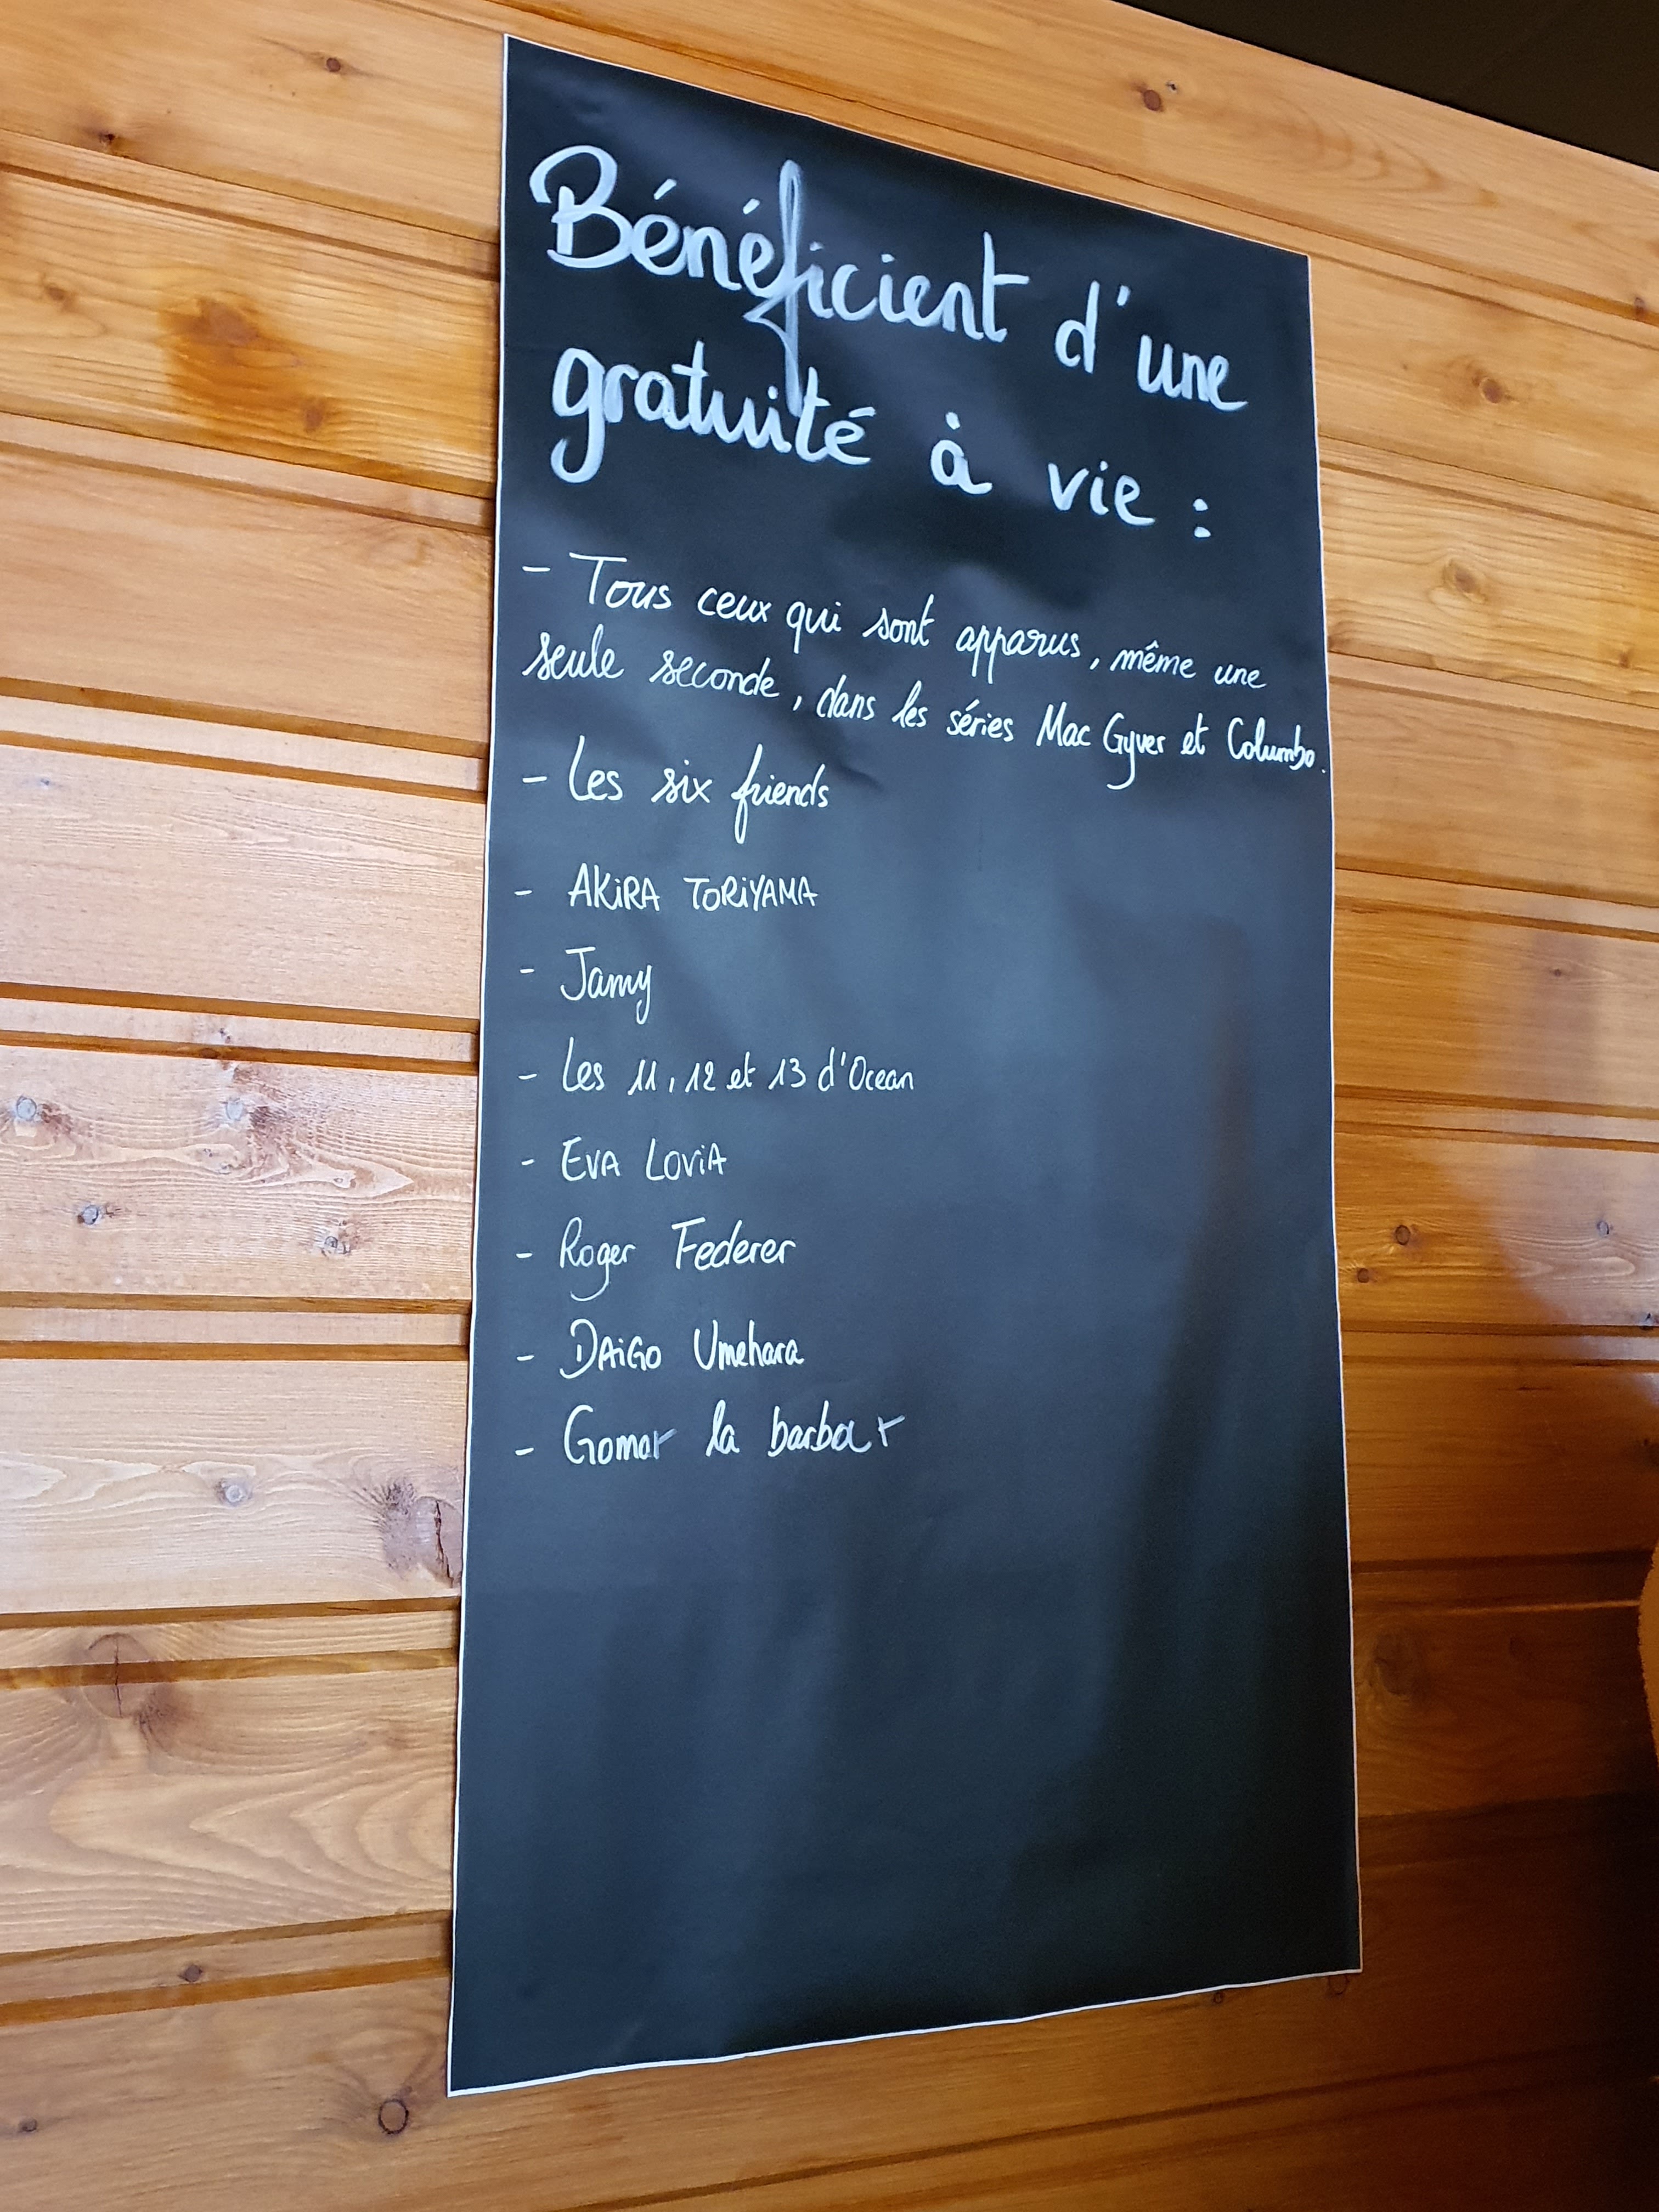 Bénéficient d'une
gratuité à vie :
- Tous ceux qui sont apparus, même une
seule seconde, dans les séries Mac Gyver et Columbo.
- Les six friends
- AKiRA TORiYAMA
- Jamy
- Les 11, 12 et 13 d'Ocean
- EVA LOViA
- Roger Federer
- DAiGO Umehara
- Gomar la barbar